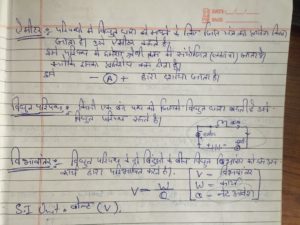 ऐमीटर : परिपथ में विद्युत धारा को मापने के लिए जिस यंत्र का प्रयोग किया
जाता है उसे ऐमीटर कहते हैं।
इसे परिपथ में हमेशा श्रेणी क्रम में संयोजित जाता है
क्योंकि इसका प्रतिरोध कम होता है।
इसे — (A) — + द्वारा दर्शाया जाता है।
विद्युत परिपथ : किसी एक बंद पथ को जिसमें विद्युत धारा बहती है उसे
विद्युत परिपथ कहते हैं।
विभवांतर : विद्युत परिपथ के दो बिंदुओं के बीच विद्युत विभवांतर को
कार्य द्वारा परिभाषित करते हैं।
V = W/Q
V = विभवांतर
W = कार्य
Q = आवेश
S.I Unit = वोल्ट (V).